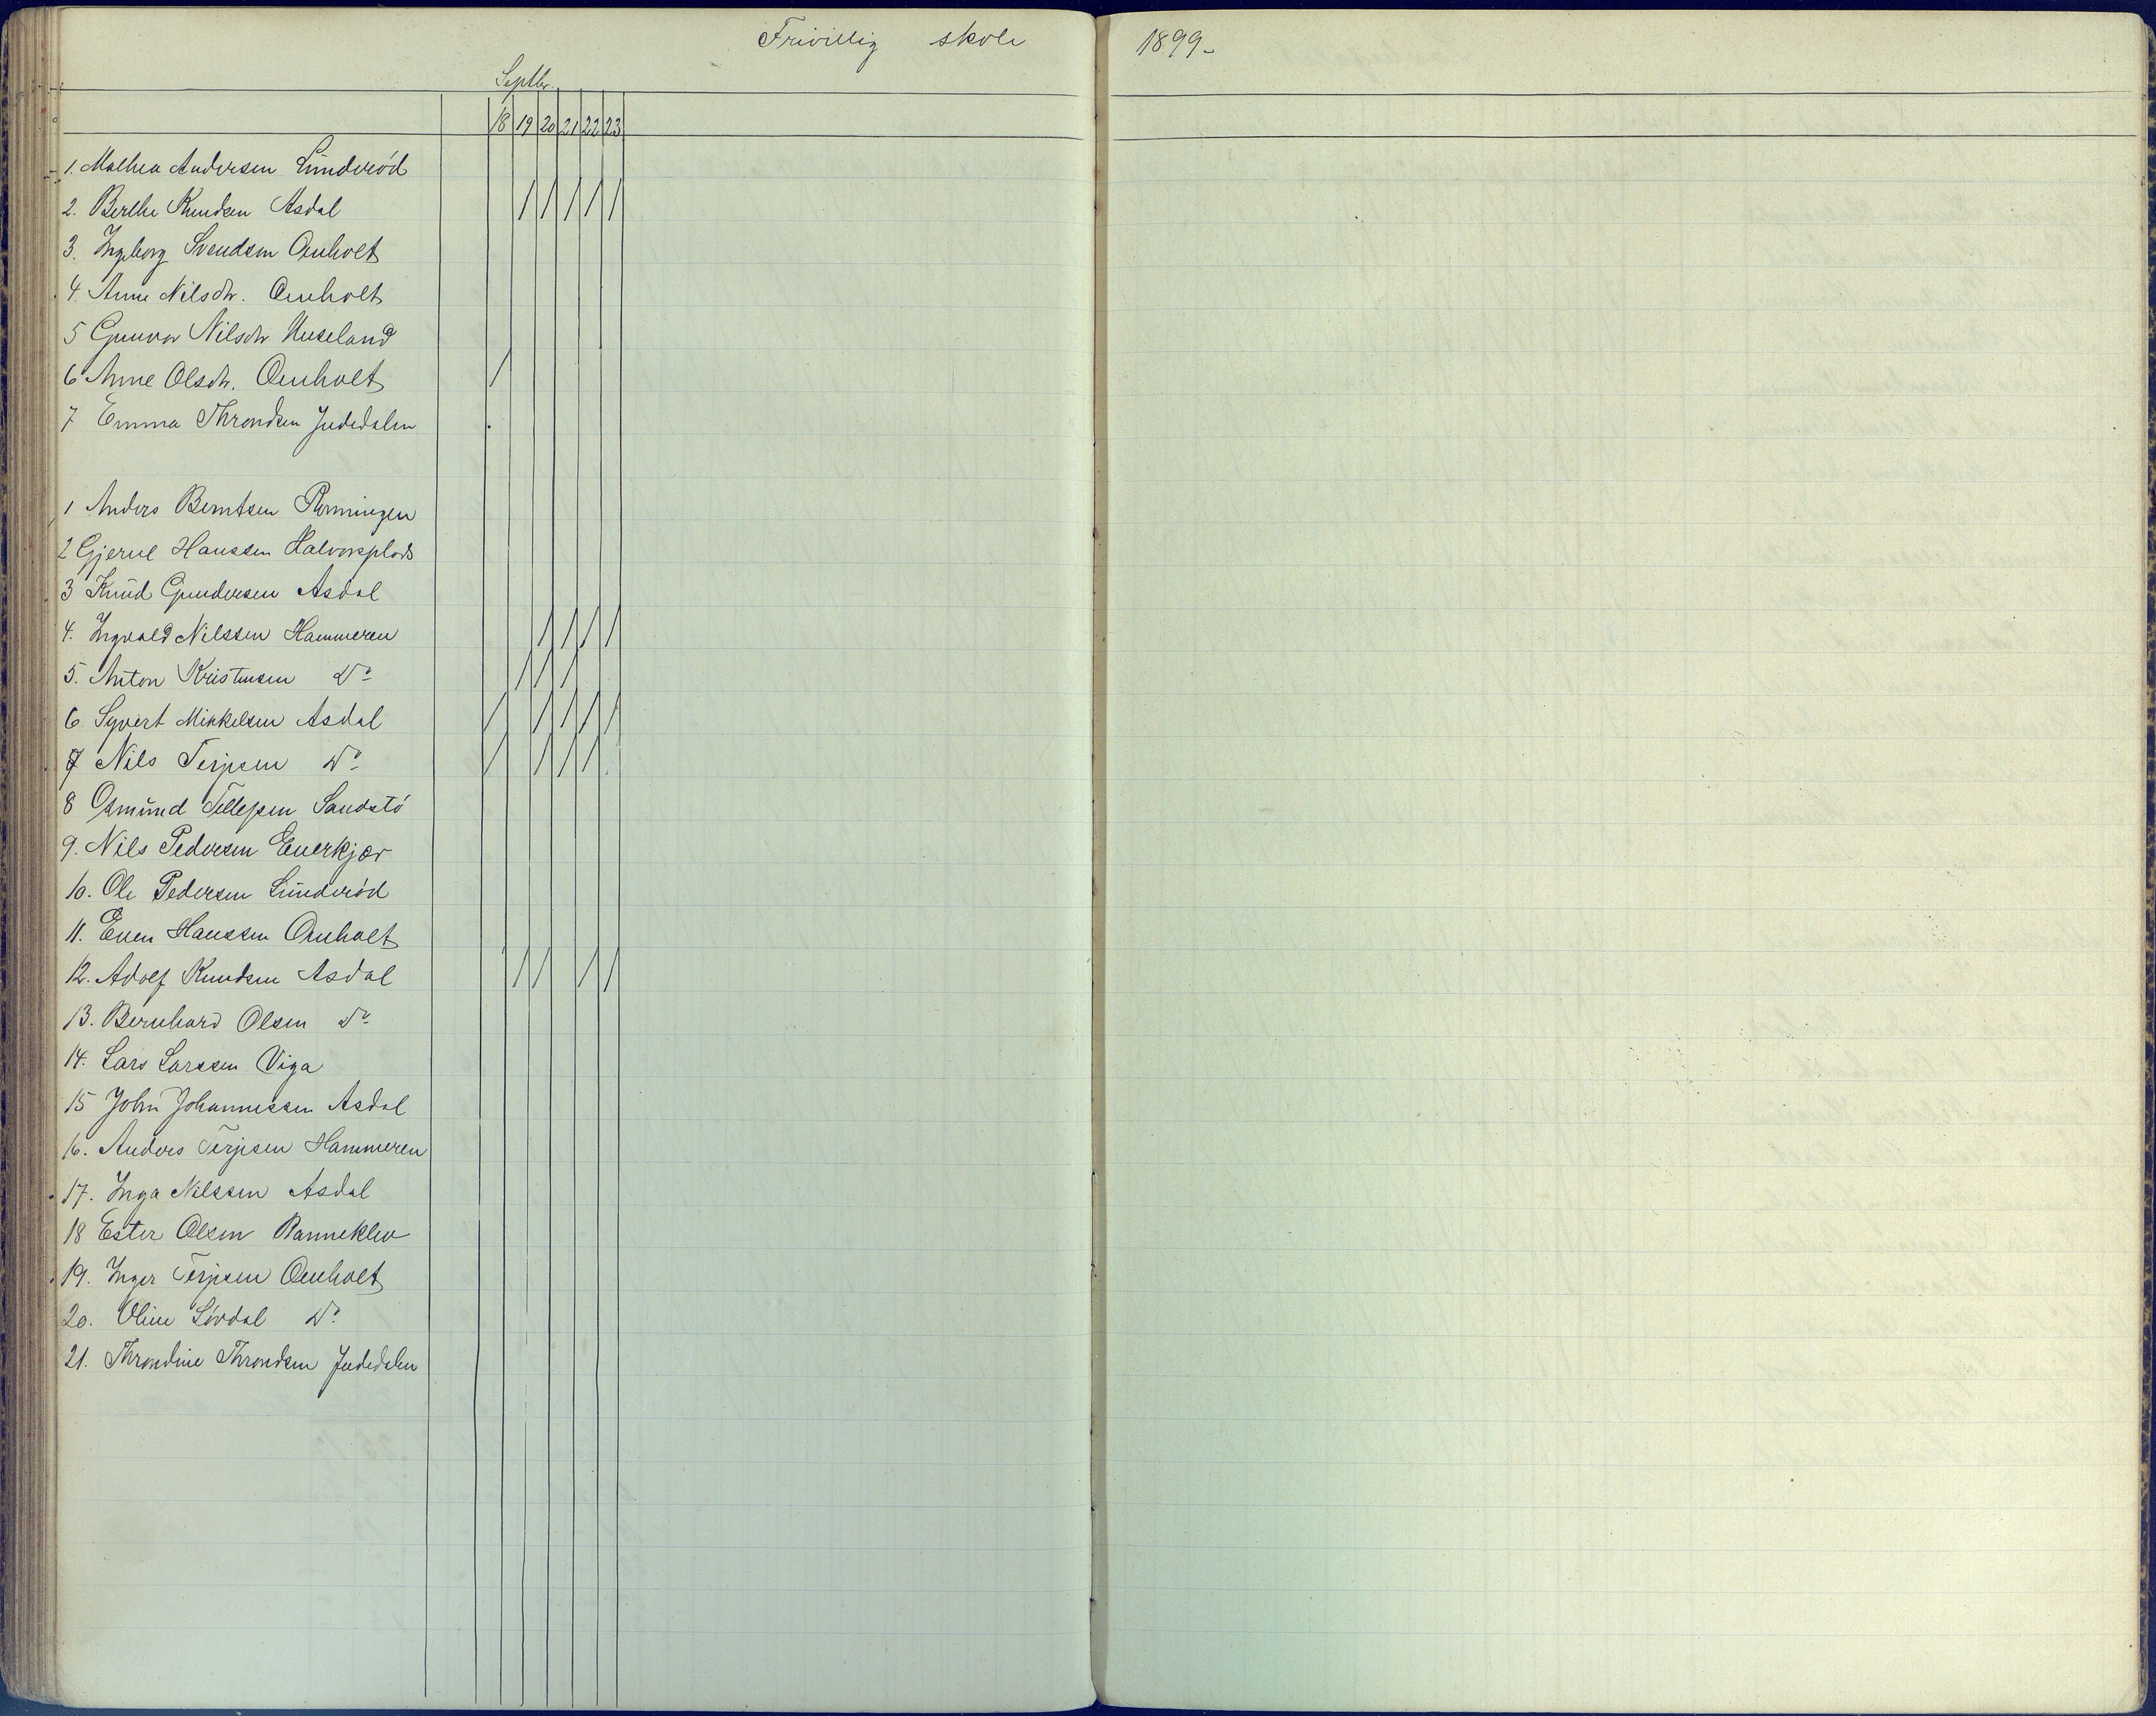 Frivillig skole 1899-
Septbr.
18 19 20 21 22 23
1. Mathea Andersen Lunderöd
2. Berthe Knudsen Asdal / / / / /
3. Ingeborg Svendsen Omholt
4. Anne Nilsdtr. Omholt
5 Gunvor Nilsdtr Huseland
6 Anne Olsdtr. Omholt /
7 Emma Throndsen Judedalen
1 Anders Berntsen Rönningen
2 Gjerul Hanssen Halvorsplads
3 Knud Gundersen Asdal
4. Ingvald Nilssen Hammeren / / / /
5. Anton Kristensen Do / / /
6 Syvert Mikkelsen Asdal / / / / /
7 Nils Terjesen Do / / / /
8 Osmund Tellefsen Sandstö
9. Nils Pedersen Enerkjær
10. Ole Pedersen Lunderöd
11. Even Hanssen Omholt
12. Adolf Knudsen Asdal / / / /
13. Bernhard Olsen Do
14. Lars Larssen Viga
15 John Johannessen Asdal
16. Anders Terjesen Hammeren
17. Inga Nilssen Asdal
18 Ester Olsen Ranneklev
19. Inger Terjesen Omholt
20. Oline Lövdal Do
21. Throndine Throndsen Judedalen